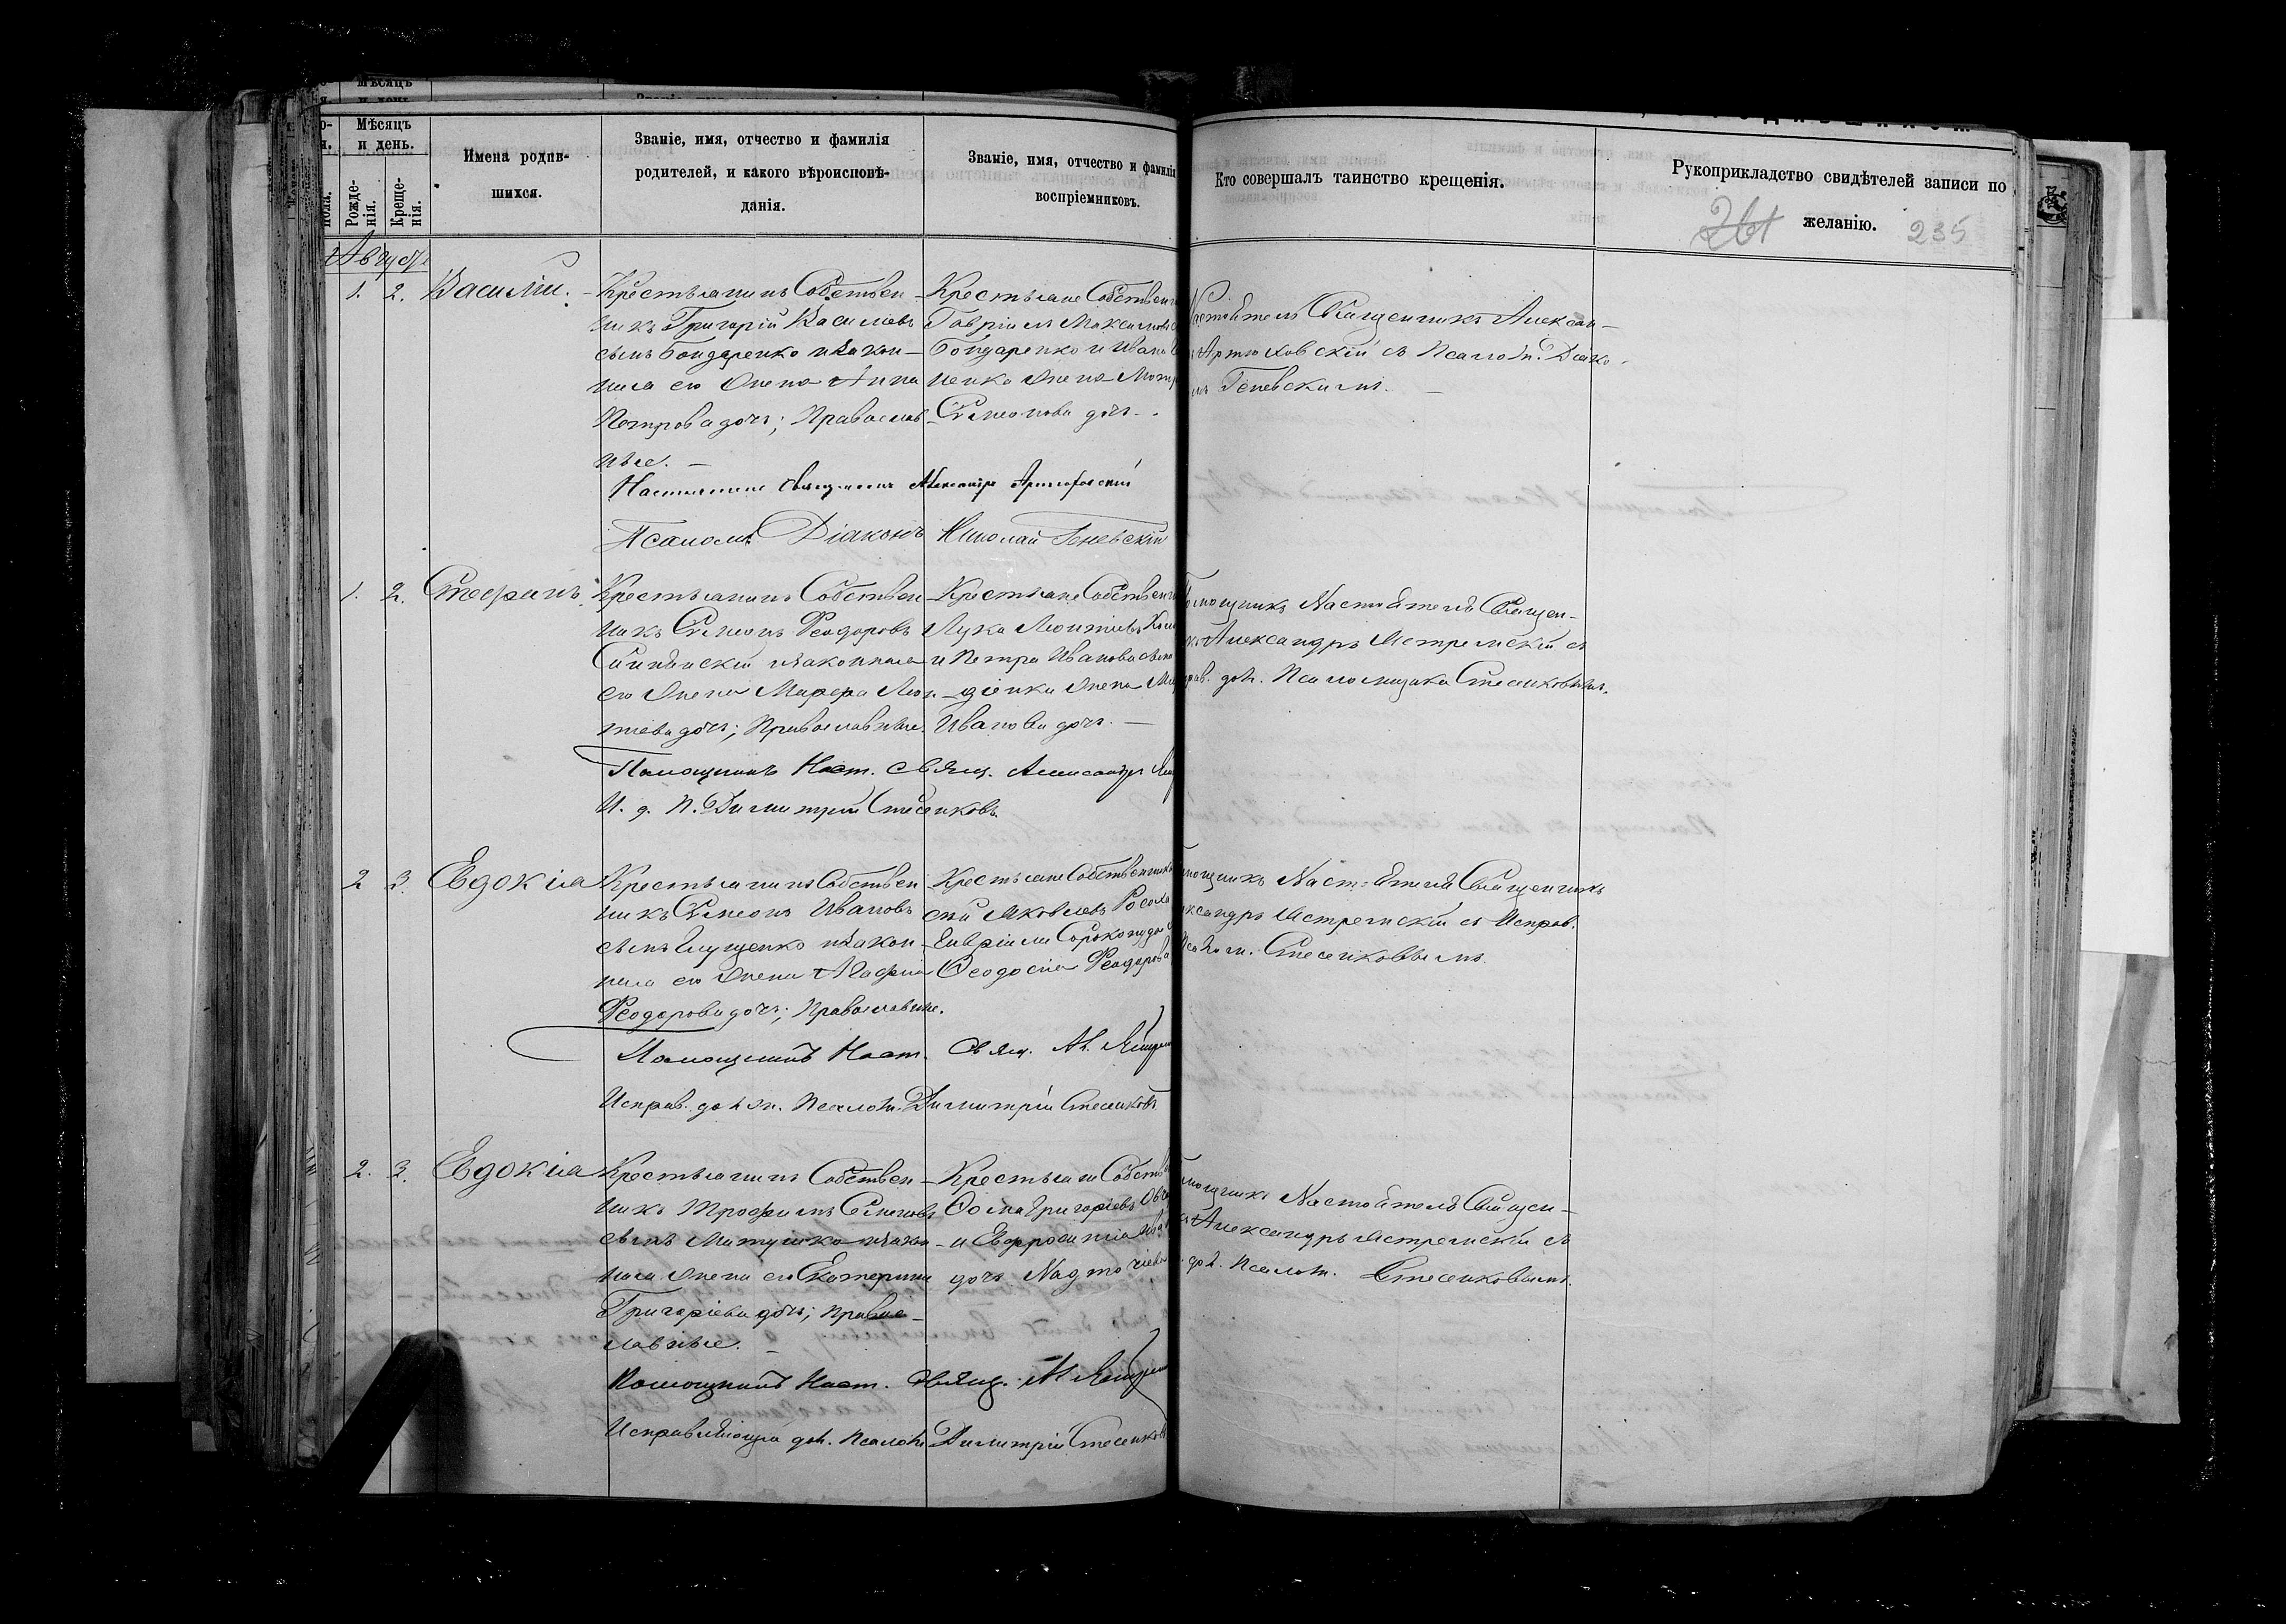 Мѣсяцъ
и день.
Рожде-
нія.
Креще-
нія.
Имена родив-
шихся.
Званіе, имя, отчество и фамилія
родителей, и какого вѣроисповѣ-
данія.
Званіе, имя, отчество и фамилія
воспріемниковъ.
Кто совершалъ таинство крещенія.
Рукоприкладство свидѣтелей записи по
желанію.
261 235
Августъ
1. 2. Василій.
Крестьянинъ Собствен-
никъ Григорій Васильевъ
сынъ Бондаренко и закон-
ная его жена Анна
Петрова дочь; Православ-
ные. —
Крестьяне Собствен
Гавріилъ Максимовъ
Бондаренко и Ивана
ненко жена
Симеонова дочь.
Настоятель Священникъ Алексан-
Артюховскій съ Псаломщ. Діако-
Геневскимъ. —
Настоятель Священникъ Александръ Артюховскій
Псаломщ. Діаконъ Николай Геневскій
1. 2. Стефанъ.
Крестьянинъ Собствен-
никъ Симеонъ Феодоровъ
и законная
его жена Марфа Леон-
тіева дочь; Православные.
Крестьяне Собствен
Лука Леонтіевъ
и Петра Иванова сына
дієнка жена
Иванова дочь. —
Помощникъ Настоятеля Священ-
Александръ Ястремскій съ
прав. дол. Псаломщика Стесенковымъ.
Помощникъ Наст. Свящ. Александръ
И. д. П. Димитрій Стесенковъ.
2 3. Евдокія
Крестьянинъ Собствен
никъ Симеонъ Ивановъ
сынъ Глущенко и закон-
ная его жена Агафія
Феодорова дочь; Православные.
Крестьяне Собственники
Яковлевъ
Гавріила
Ѳеодосія Феодорова
Помощникъ Настоятеля Священникъ
Александръ Ястремскій съ Исправ.
Псалом. Стесенковымъ.
Помощникъ Наст. Свящ. Ал.
Исправ. долж. Псалом. Димитрій Стесенковъ
2. 3. Евдокія
Крестьянинъ Собствен-
никъ Трофимъ Симеоновъ
сынъ Матушко и закон-
ная жена его Екатерина
Григоріева дочь; Право-
славные. —
Крестьяне Собств
Ѳома Григоріевъ
и Евфросинія
дочь
Помощникъ Настоятеля Священ-
Александръ Ястремскій съ
дол. Псалом. Стесенковымъ.
Помощникъ Наст. Свящ. Ал.
Исправляющій дол. Псалом. Димитрій Стесенковъ